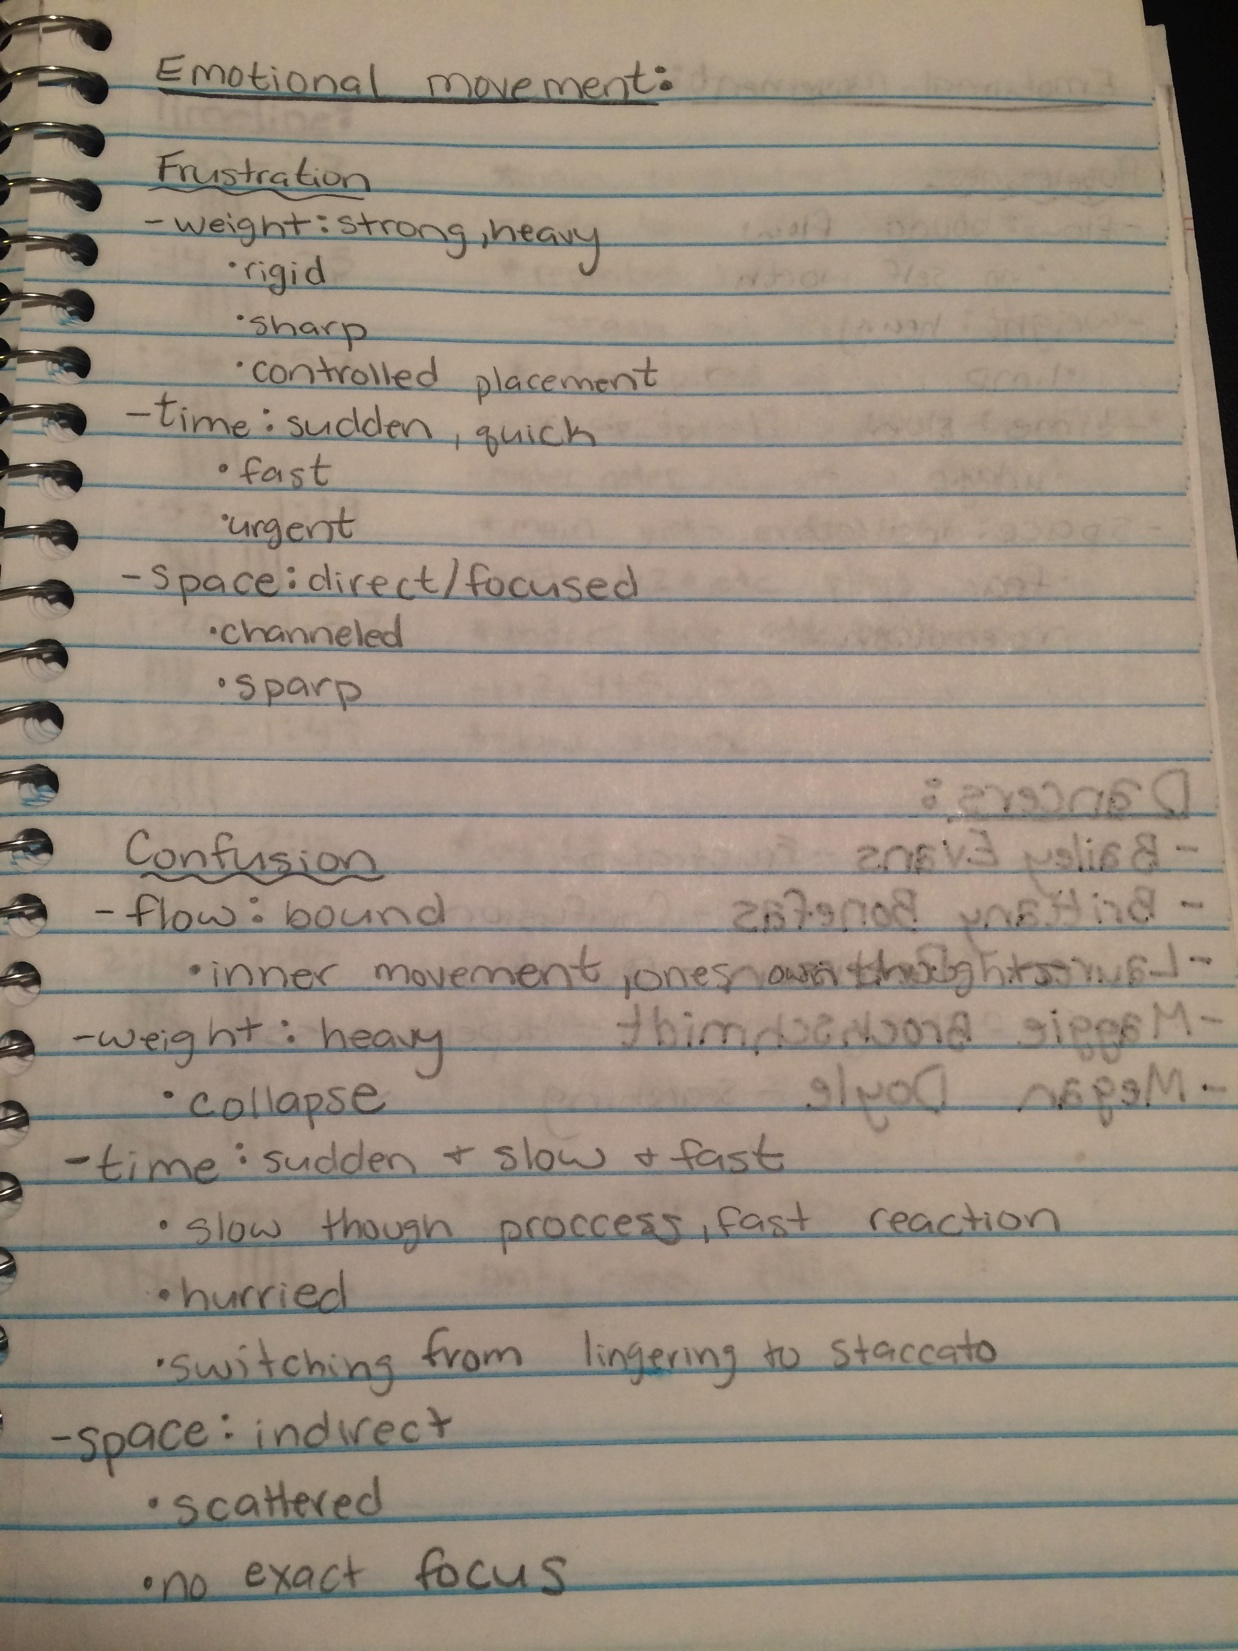 Emotional movement:
Frustration
-weight: strong, heavy
•rigid
•sharp
•controlled placement
-time: sudden, quick
•fast
•urgent
-space: direct/focused
•channeled
•sparp
Confusion
-flow: bound
•inner movement, ones own
-weight: heavy
•collapse
-time: sudden + slow + fast
•slow though proccess, fast reaction
•hurried
•switching from lingering to staccato
-space: indirect
•scattered
•no exact focus
Dancers:
-Bailey Evans
-Brittany Bonefas
-Maggie Brochschmidt
-Megan Doyle